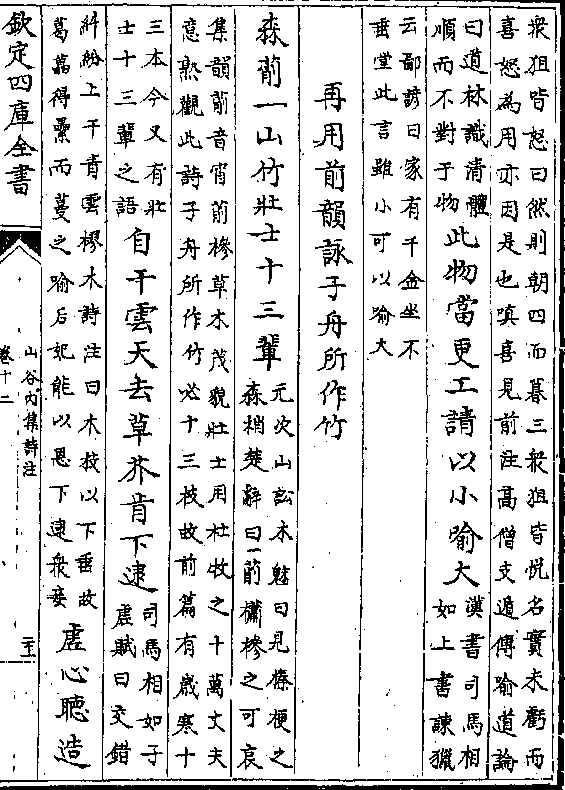 衆狙皆怒曰然則朝四而暮三衆狙皆悅名實未虧而
喜怒為用亦因是也嗔喜見前注髙僧支遁傳喻道論
曰道林識清體
順而不對于物
此物當更工請以小喻大
漢書司馬相
如上書諫獵
云鄙諺曰家有千金坐不
垂堂此言雖小可以喻大
再用前韻詠子舟所作竹
森莦一山竹壯士十三輩
元次山訟木魅曰見榛梗之
森梢楚辭曰萷櫹槮之可哀
集韻萷音宵萷槮草木茂貌壯士用杜牧之十萬丈夫
意熟觀此詩子舟所作竹必十三枝故前篇有歲寒十
三本今又有壯
士十三輩之語
自干雲天去草芥肯下逮
司馬相如子
虛賦曰交錯
糾紛上干青雲樛木詩注曰木枝以下垂故
葛藟得纍而蔓之喻后妃能以恩下逮衆妾
虛心聽造
欽定四庫全書
山谷内集詩注
卷十二